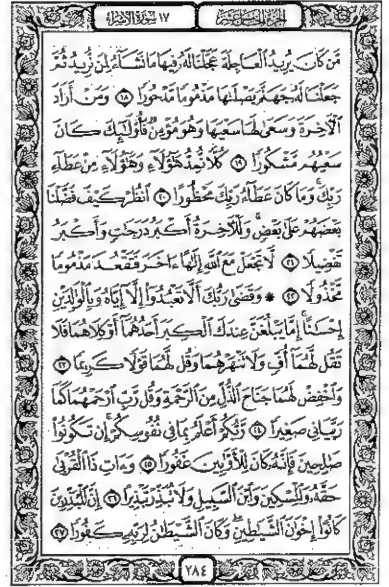 الجزء الخامس عشر
١٧ سورة الإسراء
مَّن كَانَ يُرِيدُ ٱلْعَاجِلَةَ عَجَّلْنَا لَهُۥ فِيهَا مَا نَشَآءُ لِمَن نُّرِيدُ ثُمَّ
جَعَلْنَا لَهُۥ جَهَنَّمَ يَصْلَىٰهَا مَذْمُومًا مَّدْحُورًا ١٨ وَمَنْ أَرَادَ
ٱلْأَخِرَةَ وَسَعَىٰ لَهَا سَعْيَهَا وَهُوَ مُؤْمِنٌ فَأُو۟لَٰٓئِكَ كَانَ
سَعْيُهُم مَّشْكُورًا ١٩ كُلًّا نُّمِدُّ هَٰٓؤُلَآءِ وَهَٰٓؤُلَآءِ مِنْ عَطَآءِ
رَبِّكَ ۚ وَمَا كَانَ عَطَآءُ رَبِّكَ مَحْظُورًا ٢٠ ٱنظُرْ كَيْفَ فَضَّلْنَا
بَعْضَهُمْ عَلَىٰ بَعْضٍ ۚ وَلَلْأَخِرَةُ أَكْبَرُ دَرَجَٰتٍ وَأَكْبَرُ
تَفْضِيلًا ٢١ لَّا تَجْعَلْ مَعَ ٱللَّهِ إِلَٰهًا ءَاخَرَ فَتَقْعُدَ مَذْمُومًا
مَّخْذُولًا ٢٢ ۞ وَقَضَىٰ رَبُّكَ أَلَّا تَعْبُدُوٓا۟ إِلَّآ إِيَّاهُ وَبِٱلْوَٰلِدَيْنِ
إِحْسَٰنًا ۚ إِمَّا يَبْلُغَنَّ عِندَكَ ٱلْكِبَرَ أَحَدُهُمَآ أَوْ كِلَاهُمَا فَلَا
تَقُل لَّهُمَآ أُفٍّ وَلَا تَنْهَرْهُمَا وَقُل لَّهُمَا قَوْلًا كَرِيمًا ٢٣
وَٱخْفِضْ لَهُمَا جَنَاحَ ٱلذُّلِّ مِنَ ٱلرَّحْمَةِ وَقُل رَّبِّ ٱرْحَمْهُمَا كَمَا
رَبَّيَانِى صَغِيرًا ٢٤ رَّبُّكُمْ أَعْلَمُ بِمَا فِى نُفُوسِكُمْ ۚ إِن تَكُونُوا۟
صَٰلِحِينَ فَإِنَّهُۥ كَانَ لِلْأَوَّٰبِينَ غَفُورًا ٢٥ وَءَاتِ ذَا ٱلْقُرْبَىٰ
حَقَّهُۥ وَٱلْمِسْكِينَ وَٱبْنَ ٱلسَّبِيلِ وَلَا تُبَذِّرْ تَبْذِيرًا ٢٦ إِنَّ ٱلْمُبَذِّرِينَ
كَانُوٓا۟ إِخْوَٰنَ ٱلشَّيَٰطِينِ ۖ وَكَانَ ٱلشَّيْطَٰنُ لِرَبِّهِۦ كَفُورًا ٢٧
٢٨٤